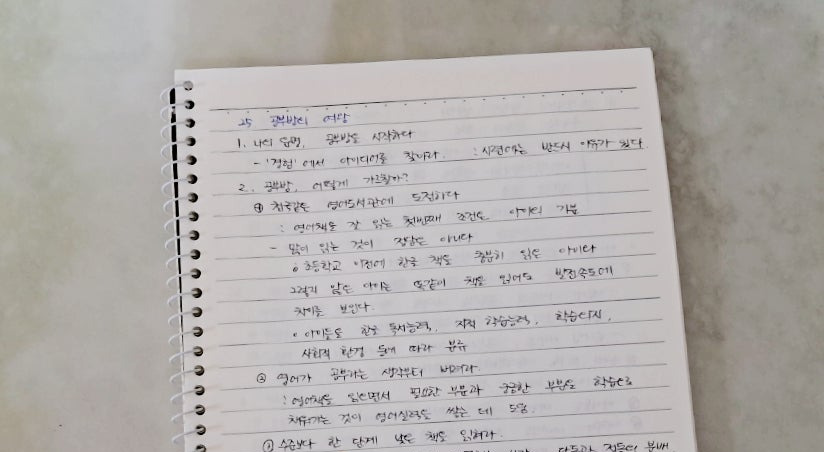 25 공부방의 여왕
1. 나의 운명, 공부방을 시작하다
- '경험'에서 아이디어를 찾아라. : 시련에는 반드시 이유가 있다.
2. 공부방, 어떻게 가르칠까?
① 천국같은 영어도서관에 도전하다
: 영어책을 잘 읽는 첫번째 조건은 아이의 기분
- 많이 읽는 것이 정답은 아니다
o 초등학교 이전에 한글 책을 충분히 읽은 아이와
그렇지 않은 아이는 똑같이 책을 읽어도 발전속도에
차이를 보인다.
o 아이들을 한글 독서능력, 지적 학습능력, 학습의지,
사회적 환경 등에 따라 분류
② 영어가 공부라는 생각부터 버려라.
: 영어책을 읽으면서 필요한 부분과 궁금한 부분을 학습으로
채워가는 것이 영어실력을 쌓는 데 도움.
③ 수준보다 한 단계 낮은 책을 읽혀라.